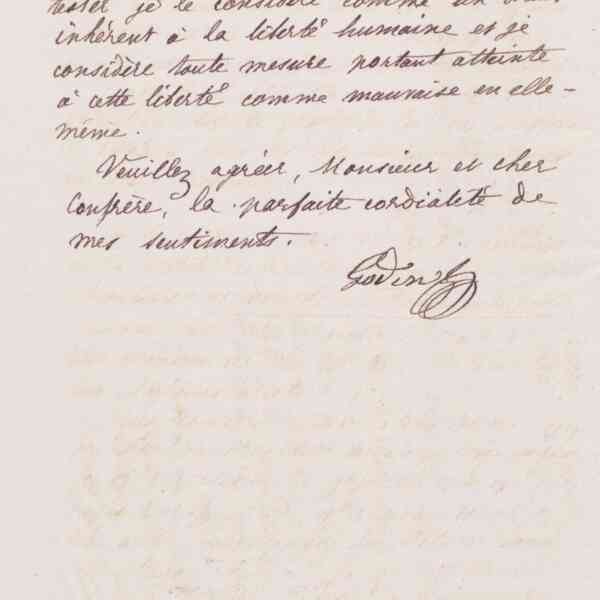 tester je le considère comme un droit
inhérent à la liberté humaine et je
considère toute mesure portant atteinte
à cette liberté comme mauvaise en elle-
même.
Veuillez agréer, Monsieur et cher
Confrère, la parfaite cordialité de
mes sentiments.
Godin